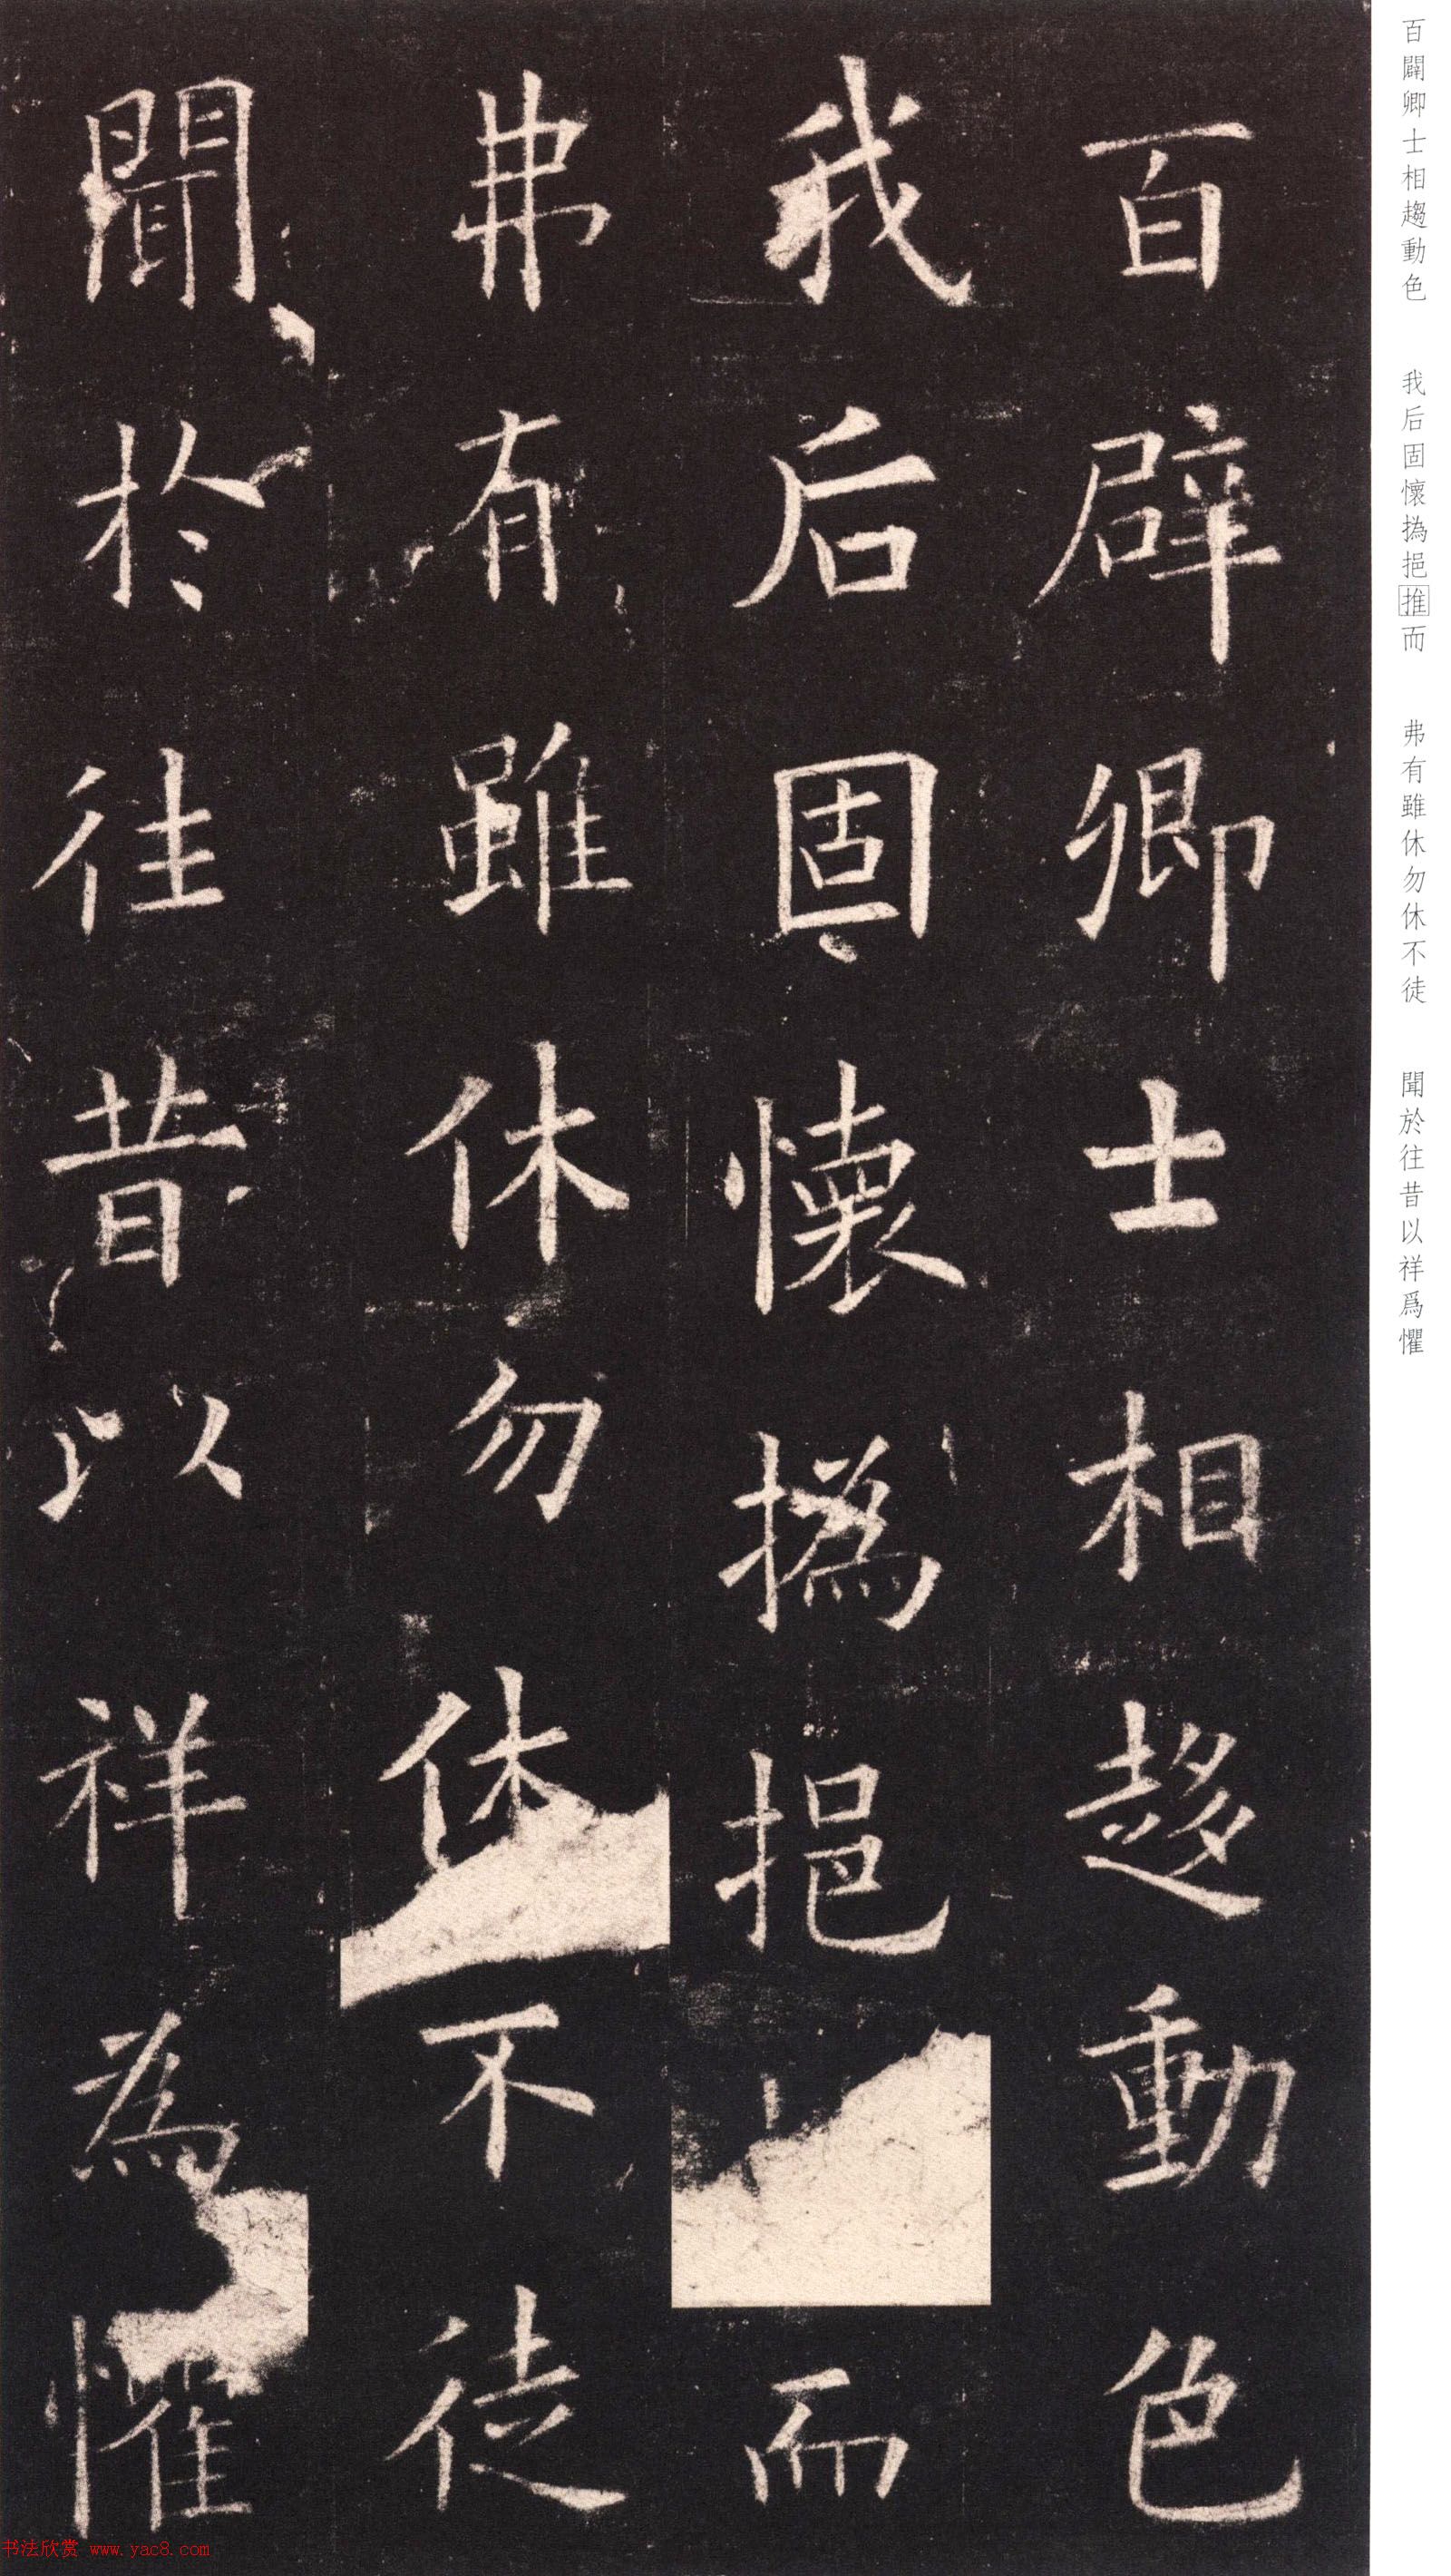 百辟卿士相趍動色
我后固懷撝挹而
弗有雖休勿休不徒
聞於往昔以祥為懼
百闢卿士相趨動色 我后固懷撝挹推而 弗有雖休勿休不徒 聞於往昔以祥爲懼
书法欣赏 www.yac8.com